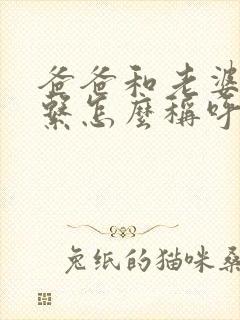 爸爸和老婆
繫怎麼稱呼
兔纸的猫咪桑